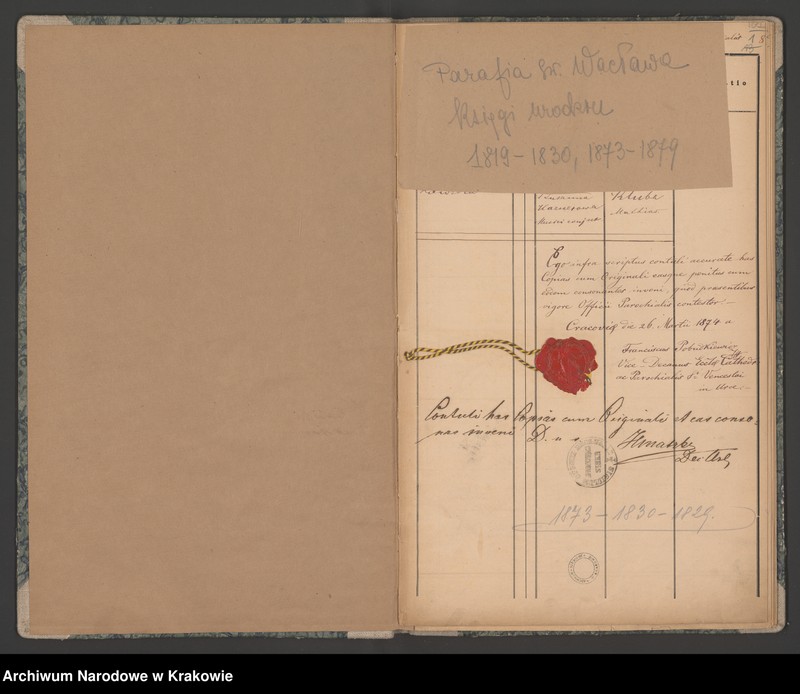 Parafia św. Wacława
księgi urodzeń
1819-1830, 1873-1879
Klubz
Mathias
Ego infra scriptus contuli accurate has
Copias cum Originali easque penitus cum
eodem consonantes inveni, quod praesentibus
vigore Officii Parochialis contestor.-
Cracoviæ die 26. Martii 1874 a
Franciscus
Vice-Decanus Eccl. Cathedr
ac Parochialis St. Venceslai
in Arce.-
Contuli has Copias cum Originali et eas conso-
nas inveni D. u s.
1873-1830-1829.
Archiwum Narodowe w Krakowie